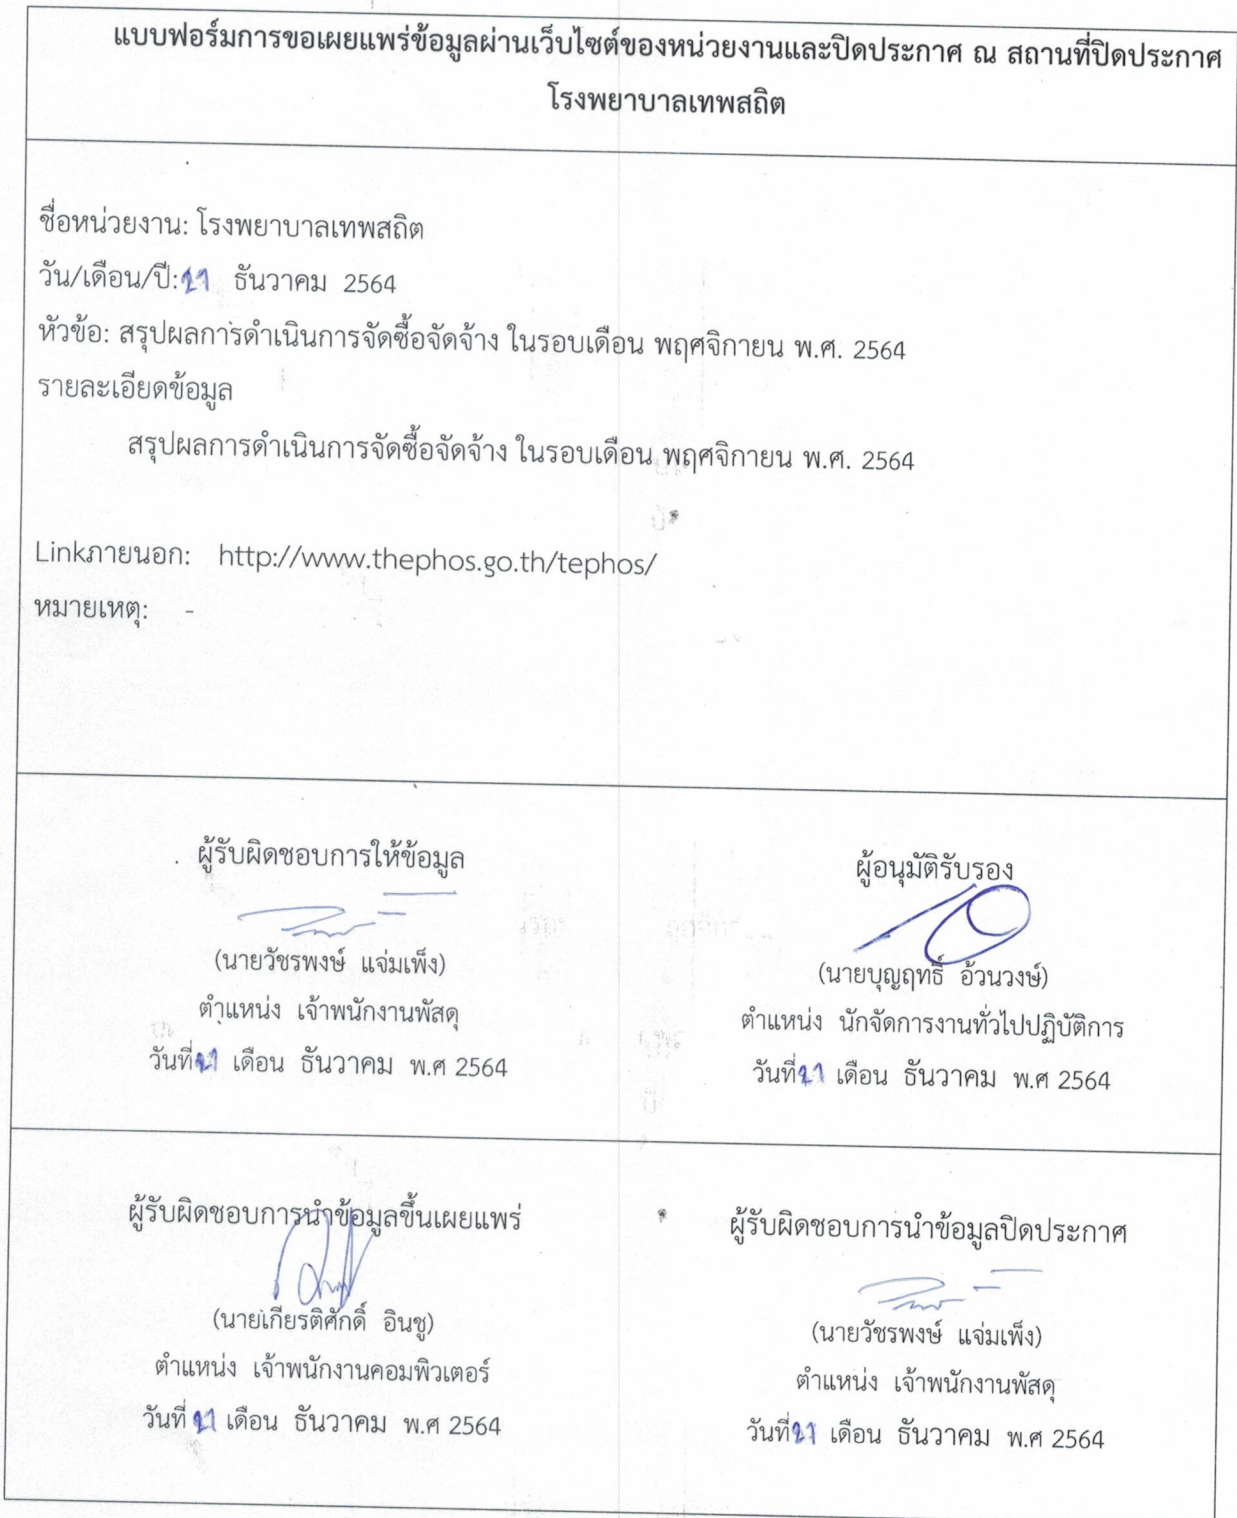 แบบฟอร์มการขอเผยแพร่ข้อมูลผ่านเว็บไซต์ของหน่วยงานและปิดประกาศ ณ สถานที่ปิดประกาศ
โรงพยาบาลเทพสถิต
ชื่อหน่วยงาน: โรงพยาบาลเทพสถิต
วัน/เดือน/ปี: ธันวาคม 2564
หัวข้อ: สรุปผลการดำเนินการจัดซื้อจัดจ้าง ในรอบเดือน พฤศจิกายน พ.ศ. 2564
รายละเอียดข้อมูล
สรุปผลการดำเนินการจัดซื้อจัดจ้าง ในรอบเดือน พฤศจิกายน พ.ศ. 2564
Linkภายนอก: http://www.thephos.go.th/tephos/
หมายเหตุ: -
ผู้รับผิดชอบการให้ข้อมูล
(นายวัชรพงษ์ แจ่มเพ็ง)
ตำแหน่ง เจ้าพนักงานพัสดุ
วันที่ เดือน ธันวาคม พ.ศ 2564
ผู้อนุมัติรับรอง
(นายบุญฤทธิ์ อ้วนวงษ์)
ตำแหน่ง นักจัดการงานทั่วไปปฏิบัติการ
วันที่ เดือน ธันวาคม พ.ศ 2564
ผู้รับผิดชอบการนำข้อมูลขึ้นเผยแพร่
(นายเกียรติศักดิ์ อินชู)
ตำแหน่ง เจ้าพนักงานคอมพิวเตอร์
วันที่ เดือน ธันวาคม พ.ศ 2564
ผู้รับผิดชอบการนำข้อมูลปิดประกาศ
(นายวัชรพงษ์ แจ่มเพ็ง)
ตำแหน่ง เจ้าพนักงานพัสดุ
วันที่ เดือน ธันวาคม พ.ศ 2564